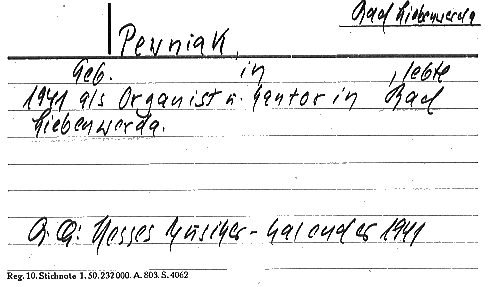 Bad Liebenwerda
Pewniak,
Geb. in , lebte
1941 als Organist u. Kantor in Bad
Liebenwerda.
Q: Hesses Musiker-Kalender 1941
Reg. 10. Stichnote 1. 50. 232 000. A. 803. S. 4062